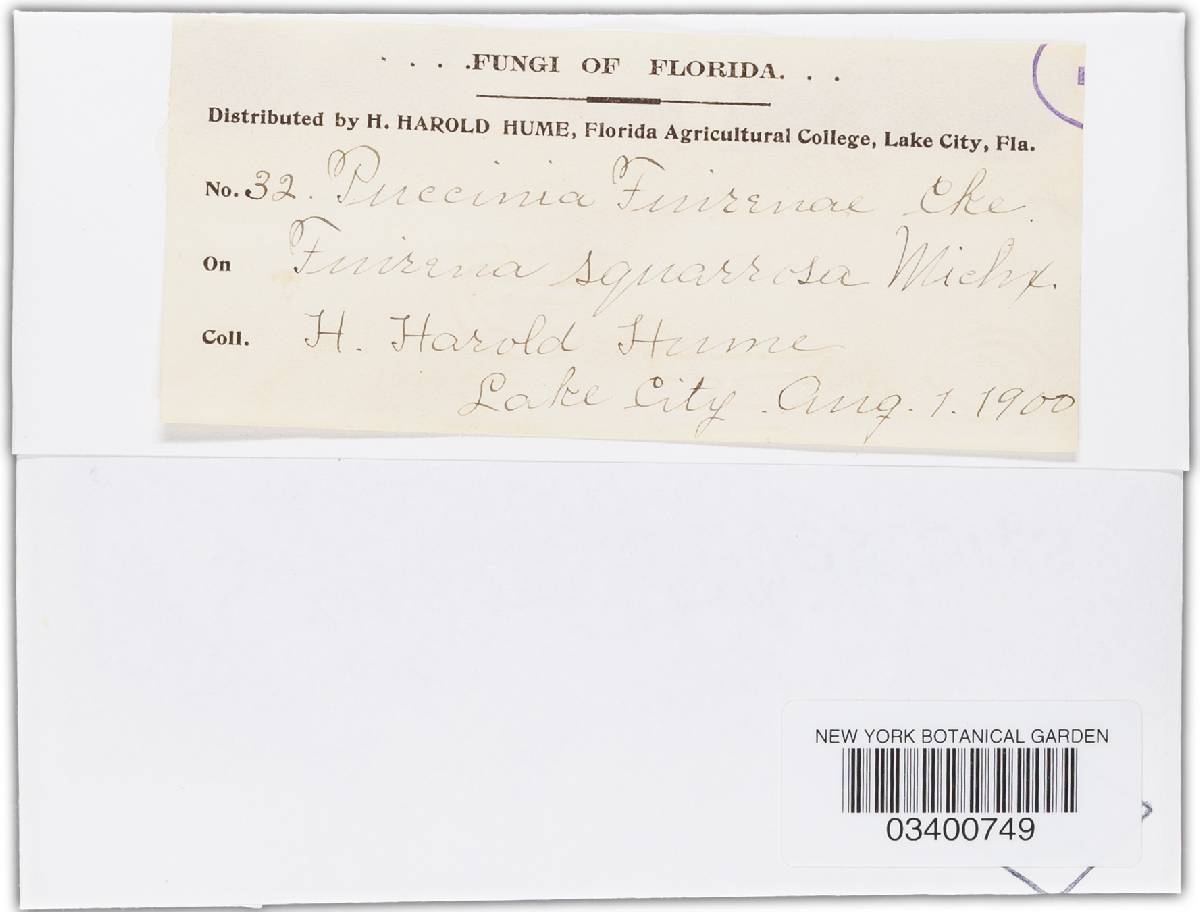 . . . .FUNGI OF FLORIDA. . .
Distributed by H. HAROLD HUME, Florida Agricultural College, Lake City, Fla.
No. 32. Puccinia Fuirenae Cke.
On Fuirena squarrosa Michx.
Coll. H. Harold Hume
Lake City. Aug. 1. 1900
NEW YORK BOTANICAL GARDEN
03400749